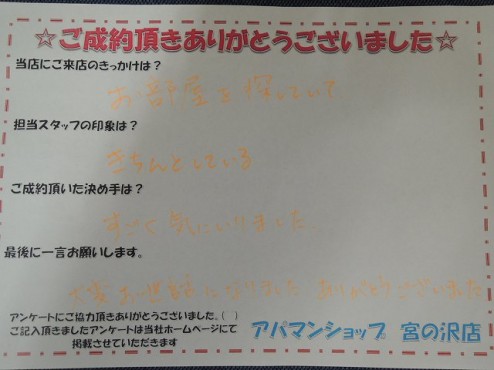 ☆ご成約頂きありがとうございました☆
当店にご来店のきっかけは？
お部屋を探していて
担当スタッフの印象は？
きちんとしている
ご成約頂いた決め手は？
すごく気にいりました。
最後に一言お願いします。
大変お世話になりました ありがとうございました
アンケートにご協力頂きありがとうございました。( )
ご記入頂きましたアンケートは当社ホームページにて
掲載させていただきます
アパマンショップ 宮の沢店